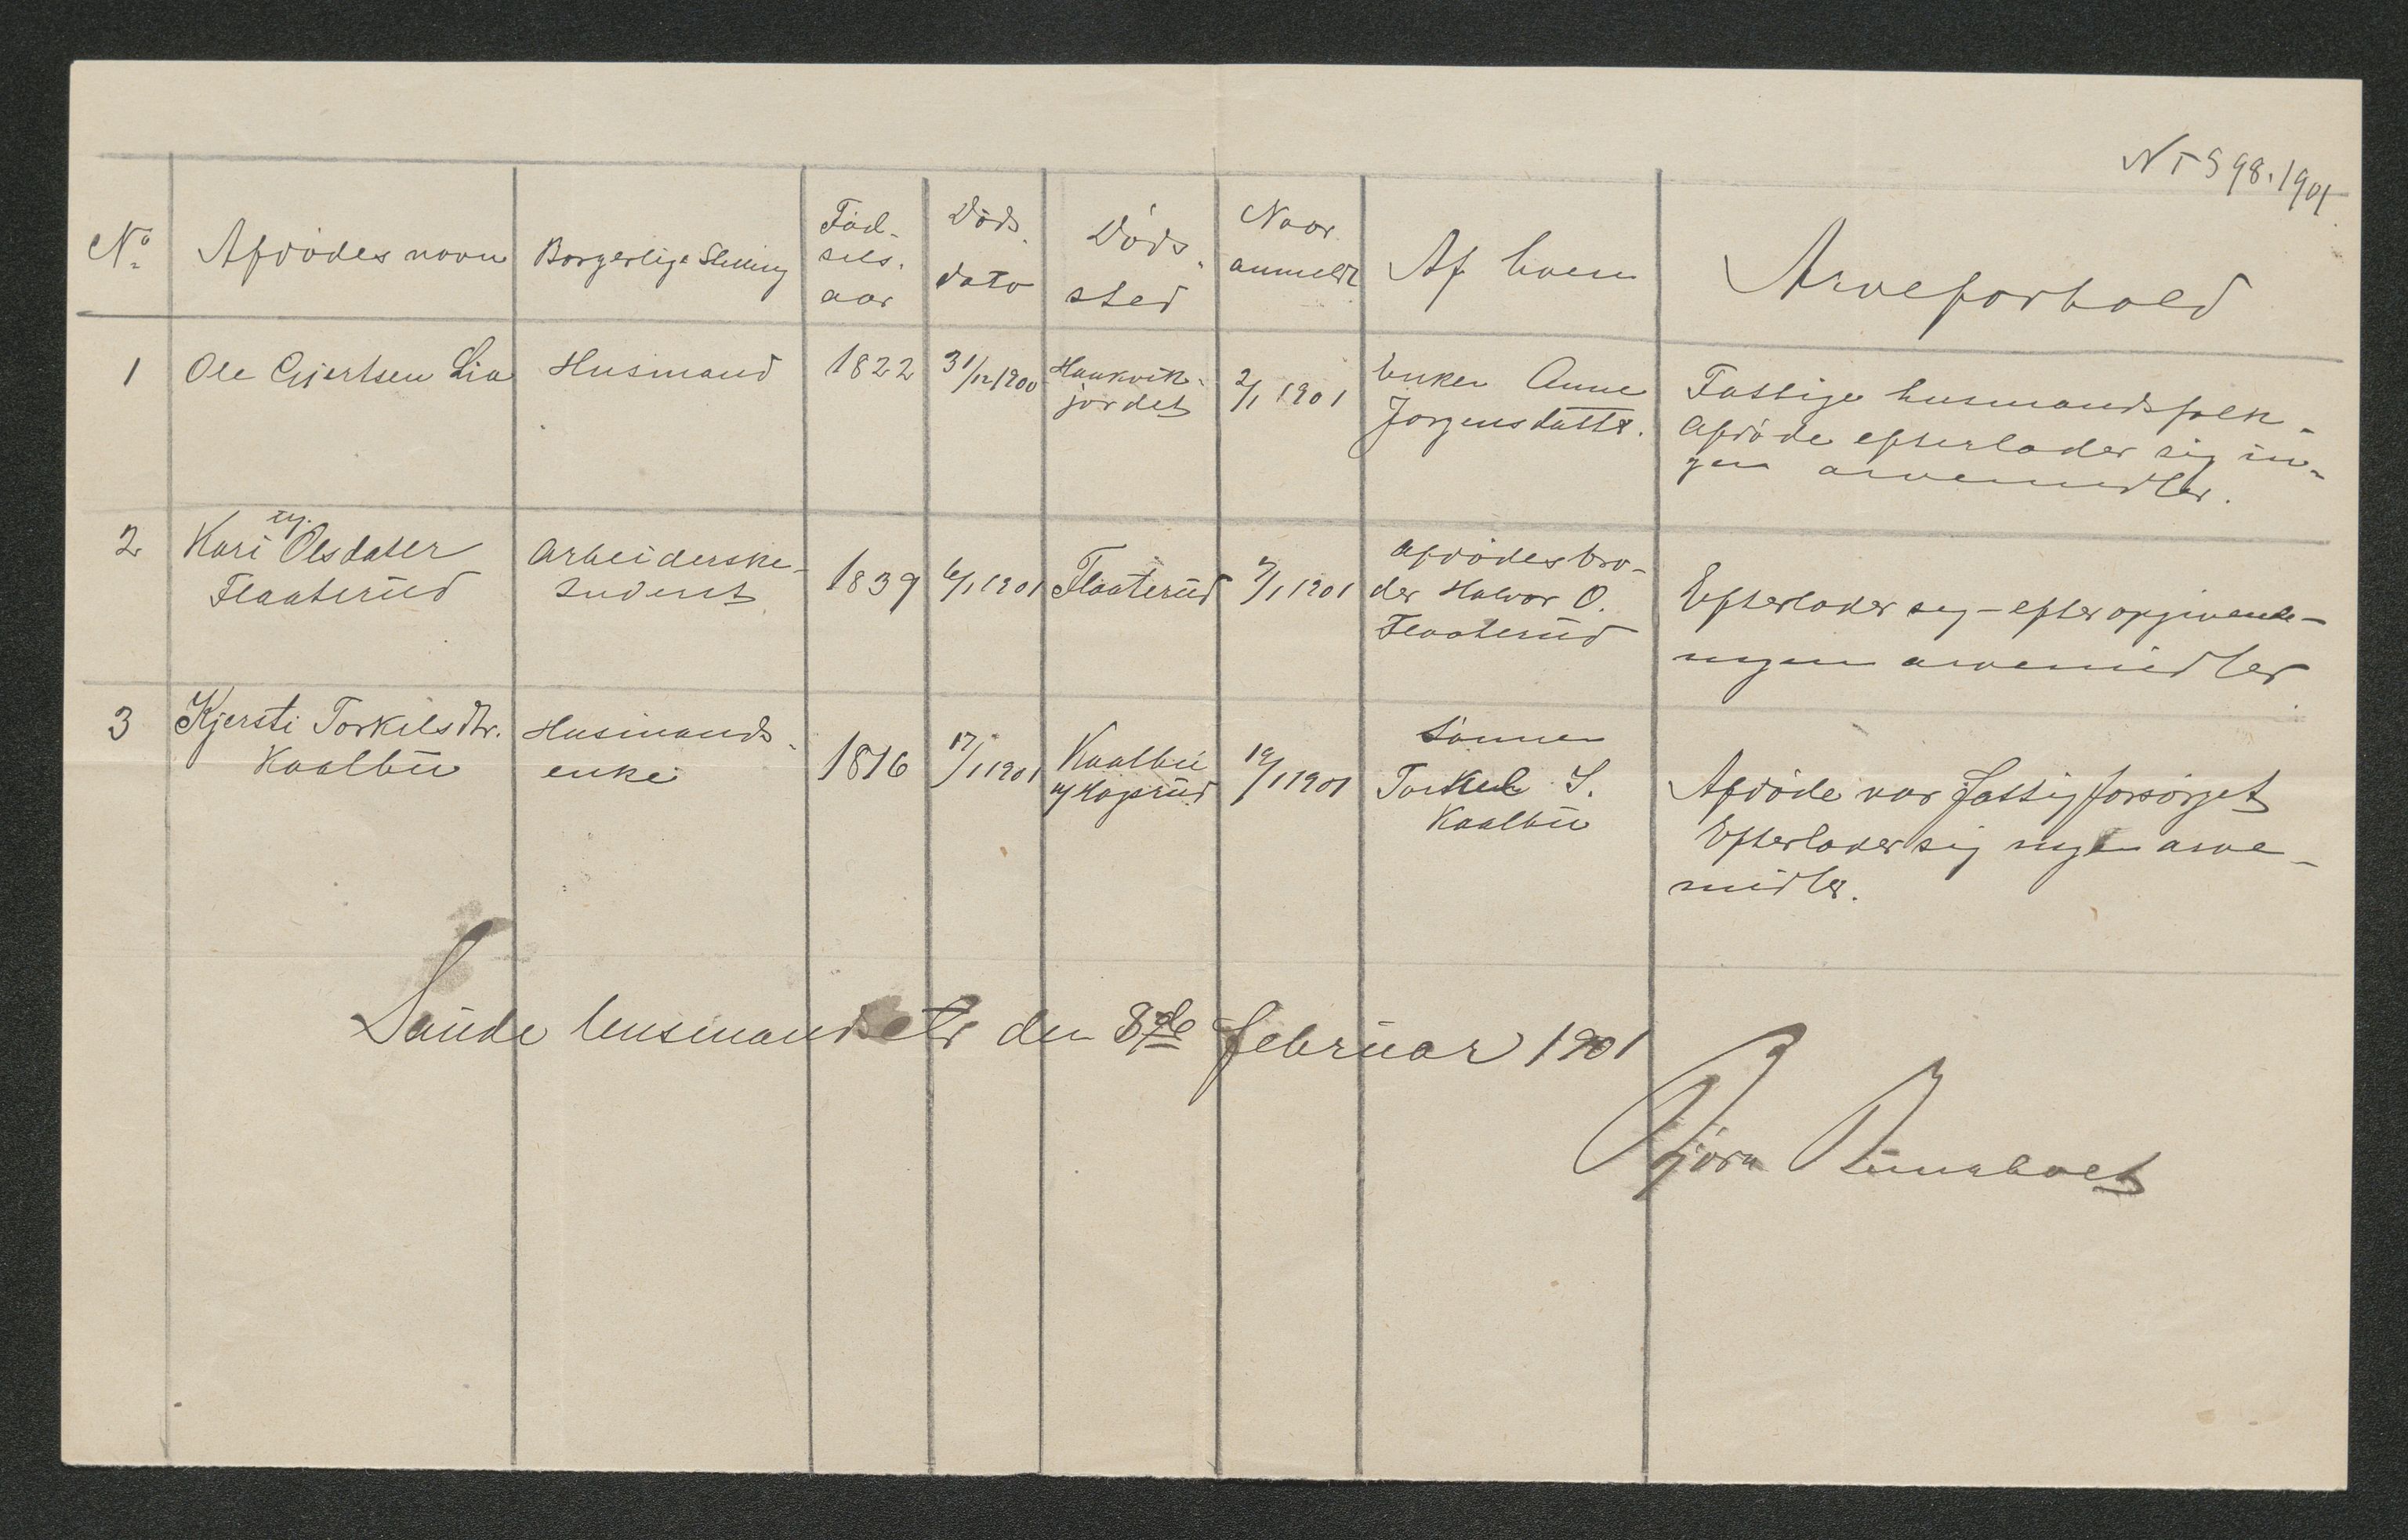 598.1901
No Afdødes navn Borgerlige Stilling Fød- Døds. Døds. Naar Af hvem Arveforhold
sels. dato sted anmeldt
aar
1 Ole Gjertsen Lia Husmand 1822 31/12 1900 Haukvik- 2/1 1901 Enken Anne Fattige husmandsfolk.
jordet Jorgensdatter. Afdøde efterlader sig in-
gen arvemidler.
2 Kari Olsdatter Arbeiderske- 1839 6/1 1901 Flaaterud 7/1 1901 Afdødes bro-
Flaaterud Inderst der Halvor O. Efterlader sig - efter opgivende -
Flaaterud ingen arvemidler
3 Kjersti Torkilsdtr. Husmands- 1816 17/1 1901 Kaalbu 19/1 1901 Sønnen
Kaalbu enke Torkel S. Afdøde var fattigforsørget
Kaalbu Efterlader sig ingen arve-
midler.
Saude lensmandsetr den 8de februar 1901